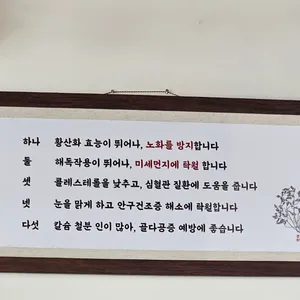 하나 황산화 효능이 뛰어나, 노화를 방지합니다
둘 해독작용이 뛰어나, 미세먼지에 탁월 합니다
셋 콜레스테롤을 낮추고, 심혈관 질환에 도움을 줍니다
넷 눈을 맑게 하고 안구건조증 해소에 탁월합니다
다섯 칼슘 철분 인이 많아, 골다공증 예방에 좋습니다